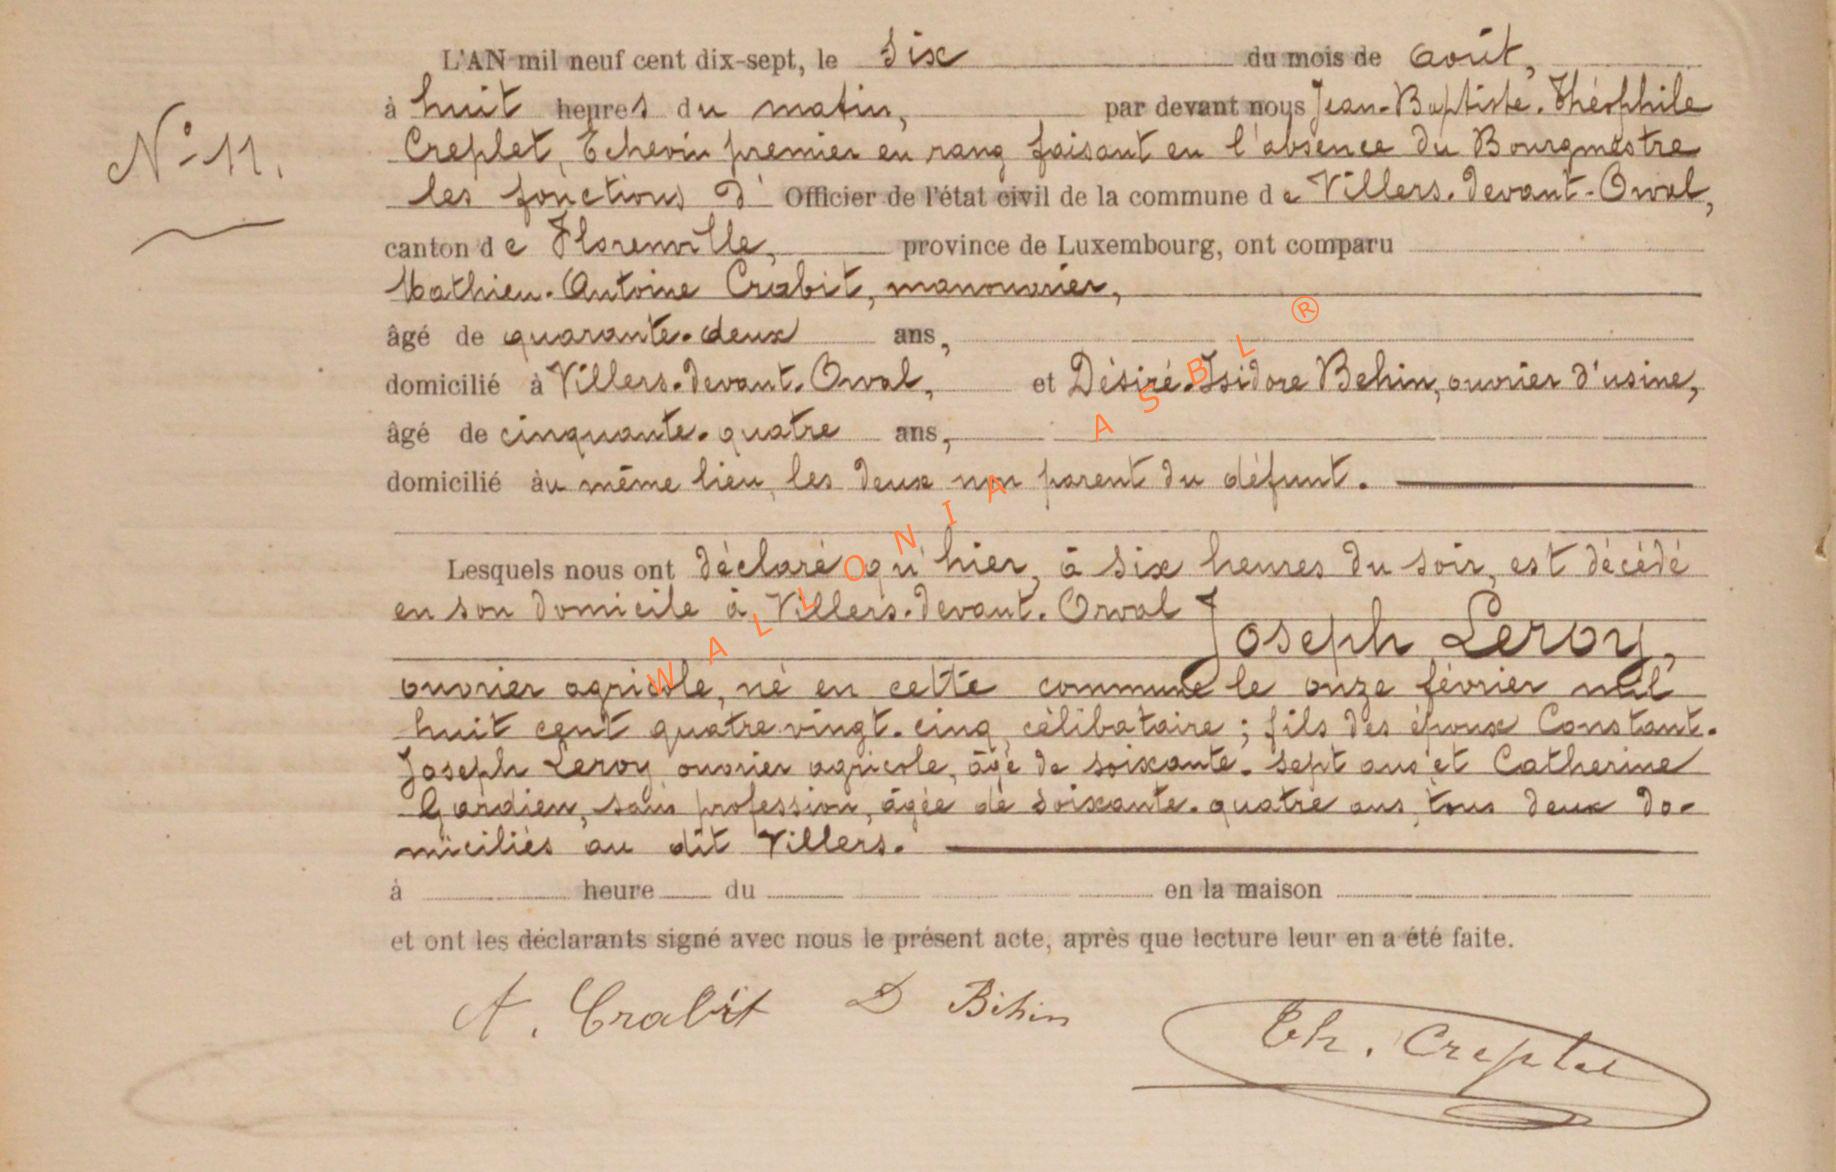 L'AN mil neuf cent dix-sept, le six du mois de août,
à huit heures du matin, par devant nous Jean-Baptiste-Théophile
N° 11. Creplet, Echevin premier en rang faisant en l'absence du Bourgmestre
les fonctions d' Officier de l'état civil de la commune de Villers-devant-Orval,
canton de Florenville, province de Luxembourg, ont comparu
Mathieu-Antoine Crabit, manouvrier,
âgé de quarante-deux ans,
domicilié à Villers-devant-Orval, et Désiré-Isidore Behin, ouvrier d'usine,
âgé de cinquante-quatre ans,
domicilié au même lieu, les deux non parent du défunt.
Lesquels nous ont déclaré qu'hier, à six heures du soir, est décédé
en son domicile à Villers-devant-Orval Joseph Leroy,
ouvrier agricole, né en cette commune le onze février mil
huit cent quatre-vingt-cinq, célibataire; fils des époux Constant-
Joseph Leroy ouvrier agricole, âgé de soixante-sept ans et Catherine
Gardien, sans profession, âgée de soixante-quatre ans, tous deux do-
miciliés au dit Villers.
à heure du en la maison
et ont les déclarants signé avec nous le présent acte, après que lecture leur en a été faite.
A. Crabit D Bihin Th. Creplet
WALLONIA ASBL ®